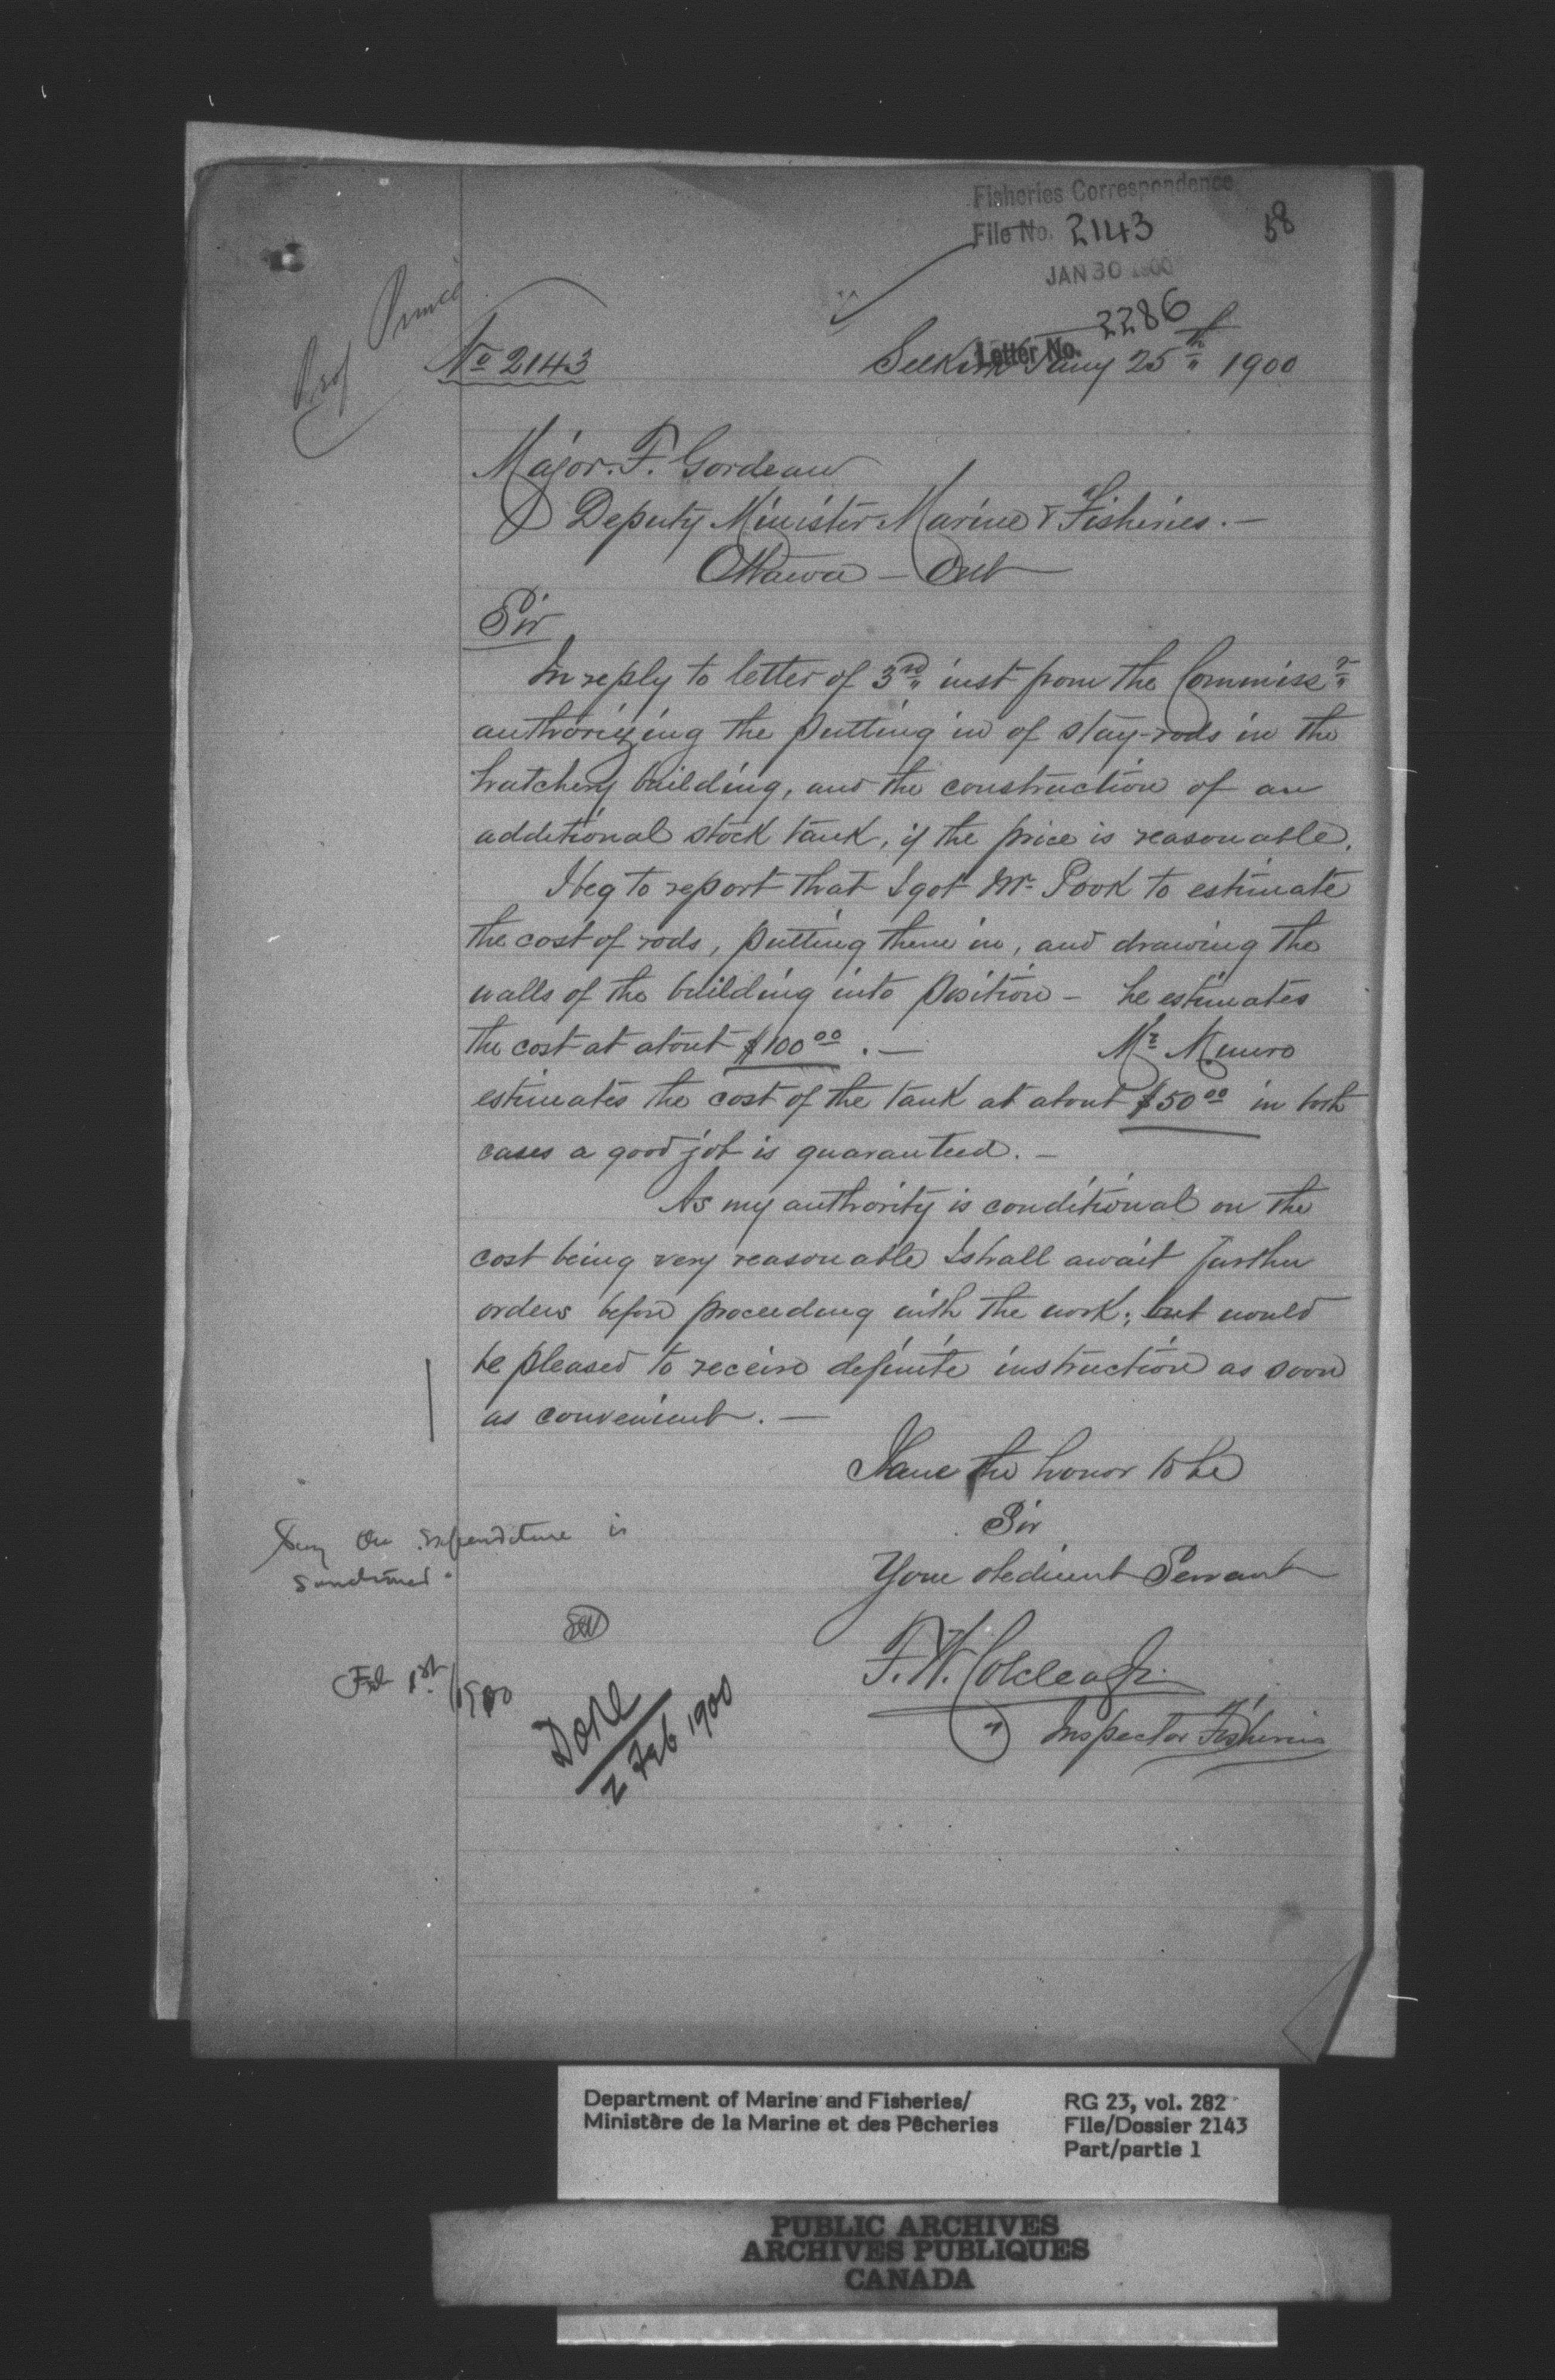 Fisheries Correspondence
File No. 2143
58
JAN 30 1900
Letter No. 2286
Prof Prince
No 2143
Selkirk Jany 25th 1900
Major. F. Gordeau
Deputy Minister Marine & Fisheries. —
Ottawa — Ont
Sir
In reply to letter of 3rd inst from the Commissr
authorizing the putting in of stay-rods in the
hatchery building, and the construction of an
additional stock tank, if the price is reasonable.
I beg to report that I got Mr Pook to estimate
the cost of rods, putting them in, and drawing the
walls of the building into position — he estimates
the cost at about $100 00. — Mr Munro
estimates the cost of the tank at about $50 00 in both
cases a good job is guaranteed. —
As my authority is conditional on the
cost being very reasonable I shall await further
orders before proceeding with the work; but would
be pleased to receive definite instruction as soon
as convenient. —
I have the honor to be
Sir
Your obedient Servant
F. W. Colcleugh
Inspector Fisheries
Say the expenditure is
sanctioned.
Feb 1st/1900
Done
2 Feb 1900
Department of Marine and Fisheries/
Ministère de la Marine et des Pêcheries
RG 23, vol. 282
File/Dossier 2143
Part/partie 1
PUBLIC ARCHIVES
ARCHIVES PUBLIQUES
CANADA